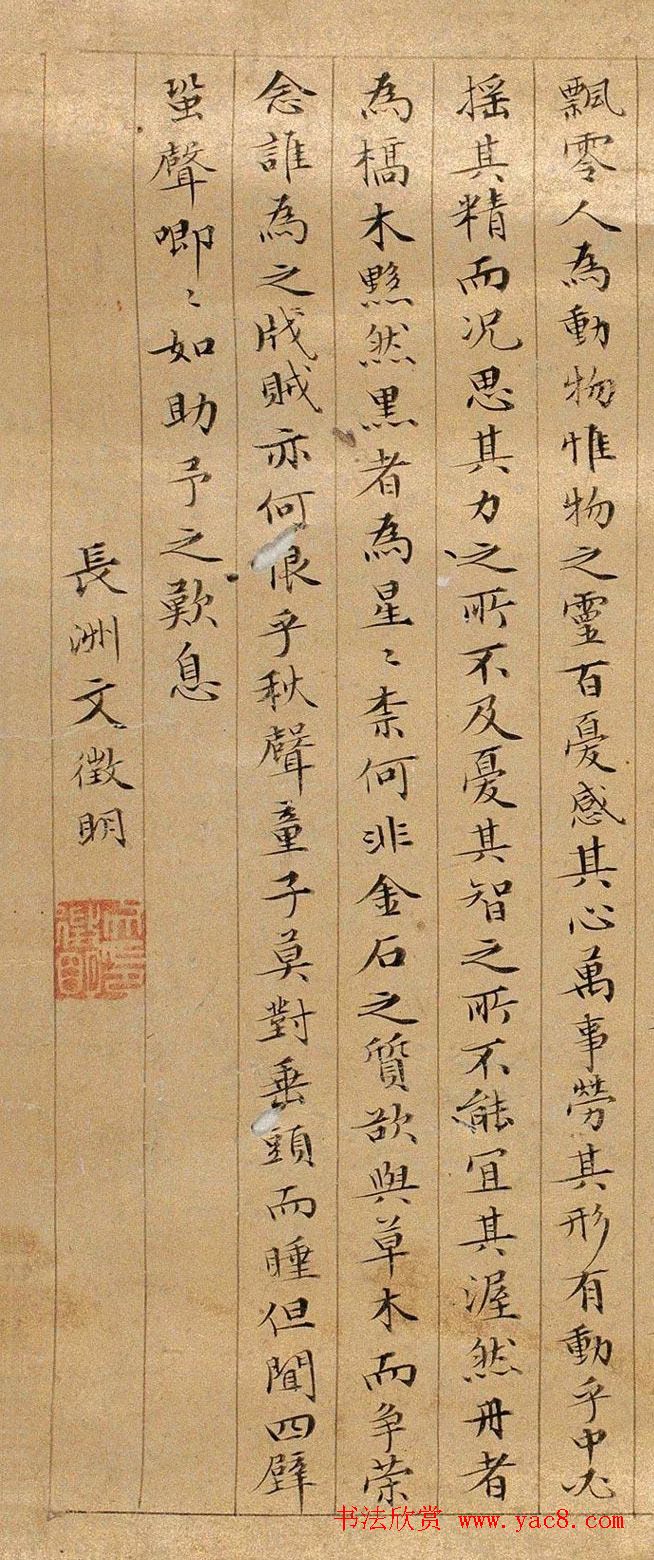 飄零人為動物惟物之靈百憂感其心萬事勞其形有動乎中必
搖其精而况思其力之所不及憂其智之所不能宜其渥然丹者
為槁木黟然黑者為星〻柰何非金石之質欲與草木而爭荣
念誰為之戕賊亦何恨乎秋聲童子莫對垂頭而睡但聞四壁
蛩聲唧〻如助予之歎息
長洲文徵明
书法欣赏 www.yac8.com